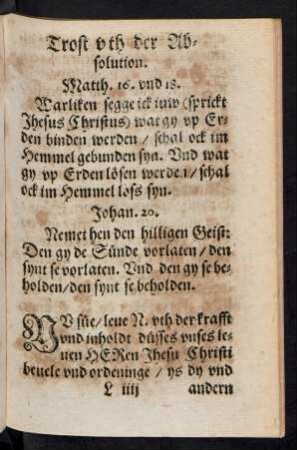 Trost vth der Ab-
solution.
Matth. 16. vnd 18.
Warliken segge ick iuw (sprickt
Jhesus Christus) wat gy vp Er-
den binden werden / schal ock im
Hemmel gebunden syn. Vnd wat
gy vp Erden lösen werden / schal
ock im Hemmel loss syn.
Johan. 20.
Nemet hen den hilligen Geist:
Den gy de Sünde vorlaten / den
synt se vorlaten. Vnd den gy se be-
holden / den synt se beholden.
NV süe / leue N. vth der krafft
vnd inholdt düsses vnses le-
uen HERen Jhesu Christi
beuele vnd ordeninge / ys dy vnd
L iiij andern